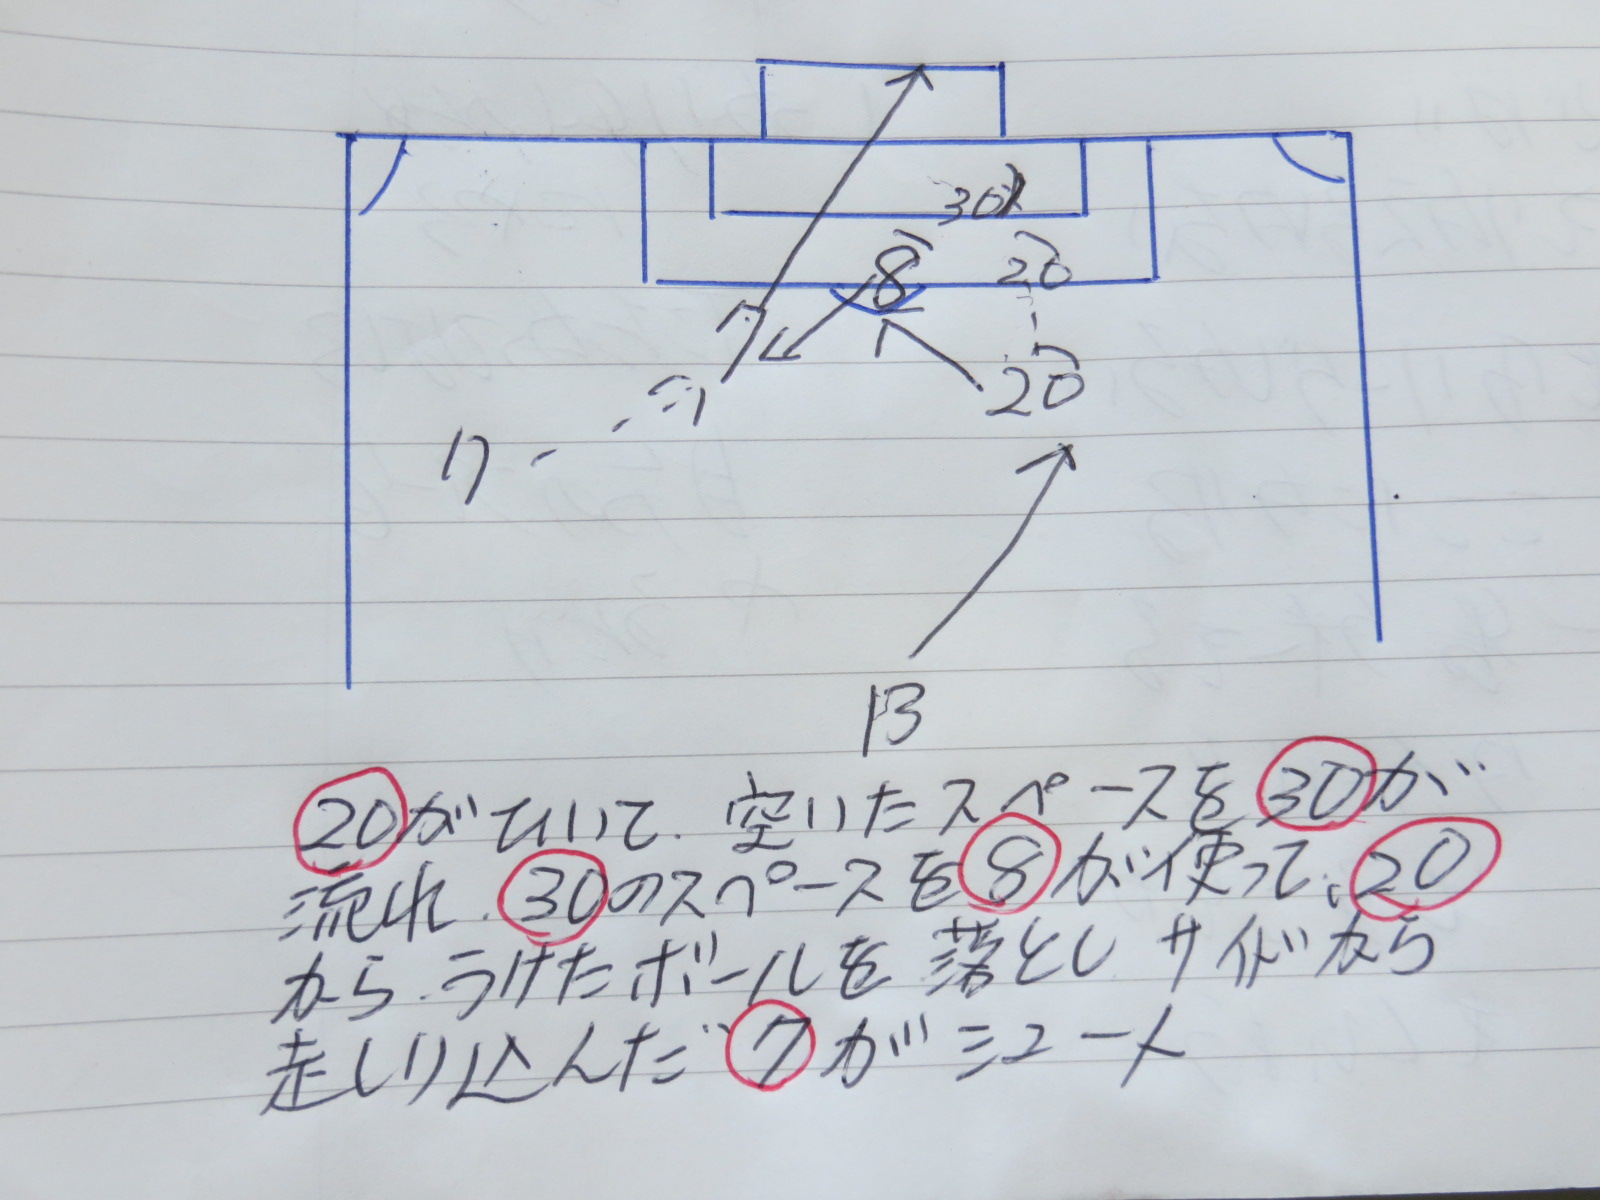 30
8
20
7
20
7
7
13
20がひいて、空いたスペースを30が
流れ、30のスペースを8が使って、20
から、うけたボールを落としサイドから
走しり込んだ7がシュート